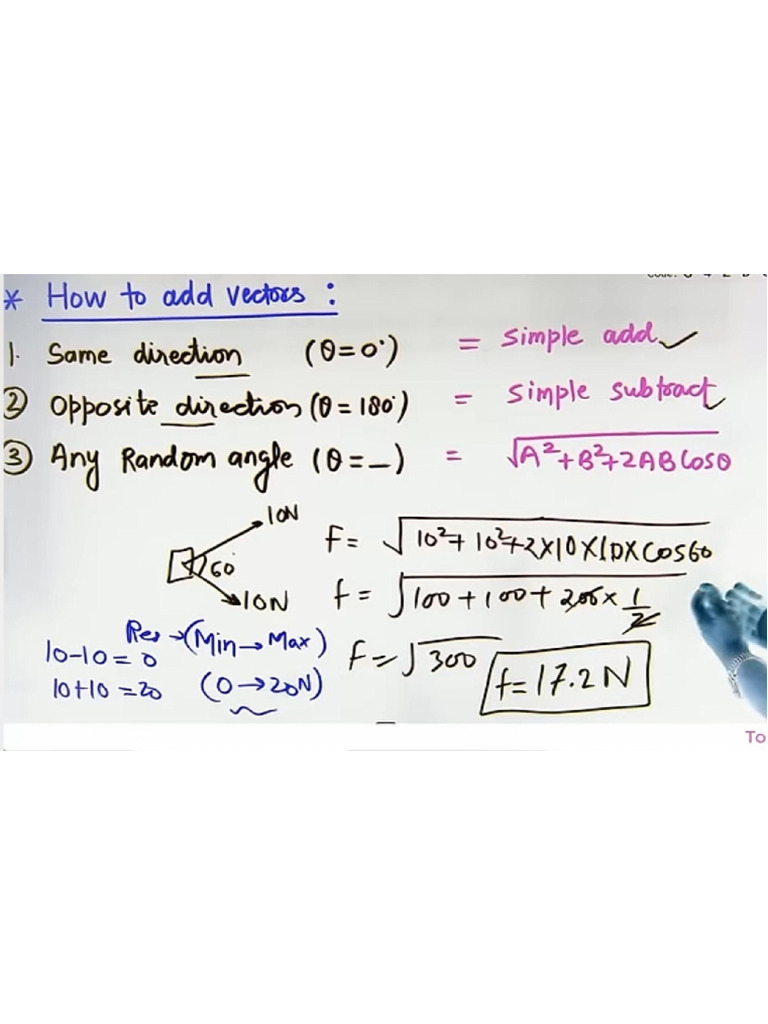 * How to add vectors :
1. Same direction (θ=0°) = simple add ✓
② Opposite direction (θ=180°) = simple subtract
③ Any Random angle (θ=—) = √A²+B²+2ABCosθ
10N
60
10N
F= √10²+10²+2×10×10×Cos60
f= √100+100+200×1/2
Res→(Min→Max)
10-10=0
10+10=20
(0→20N)
F=√300
f=17.2N
To